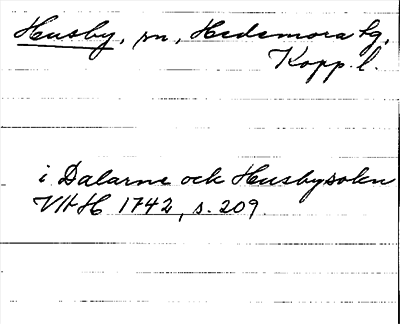 Husby, sn, Hedemora tg,
Kopp. l.
i Dalarne och Husby sokn
VHH 1742, s. 209